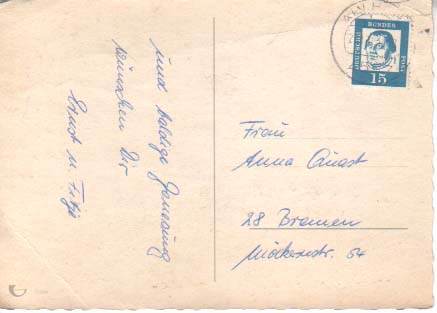 und baldige Genesung
wünschen Dir
Ernst u. Fritz
DEUTSCHE
BUNDES
POST
15
Frau
Anna Quast
28 Bremen
Möckernstr. 54